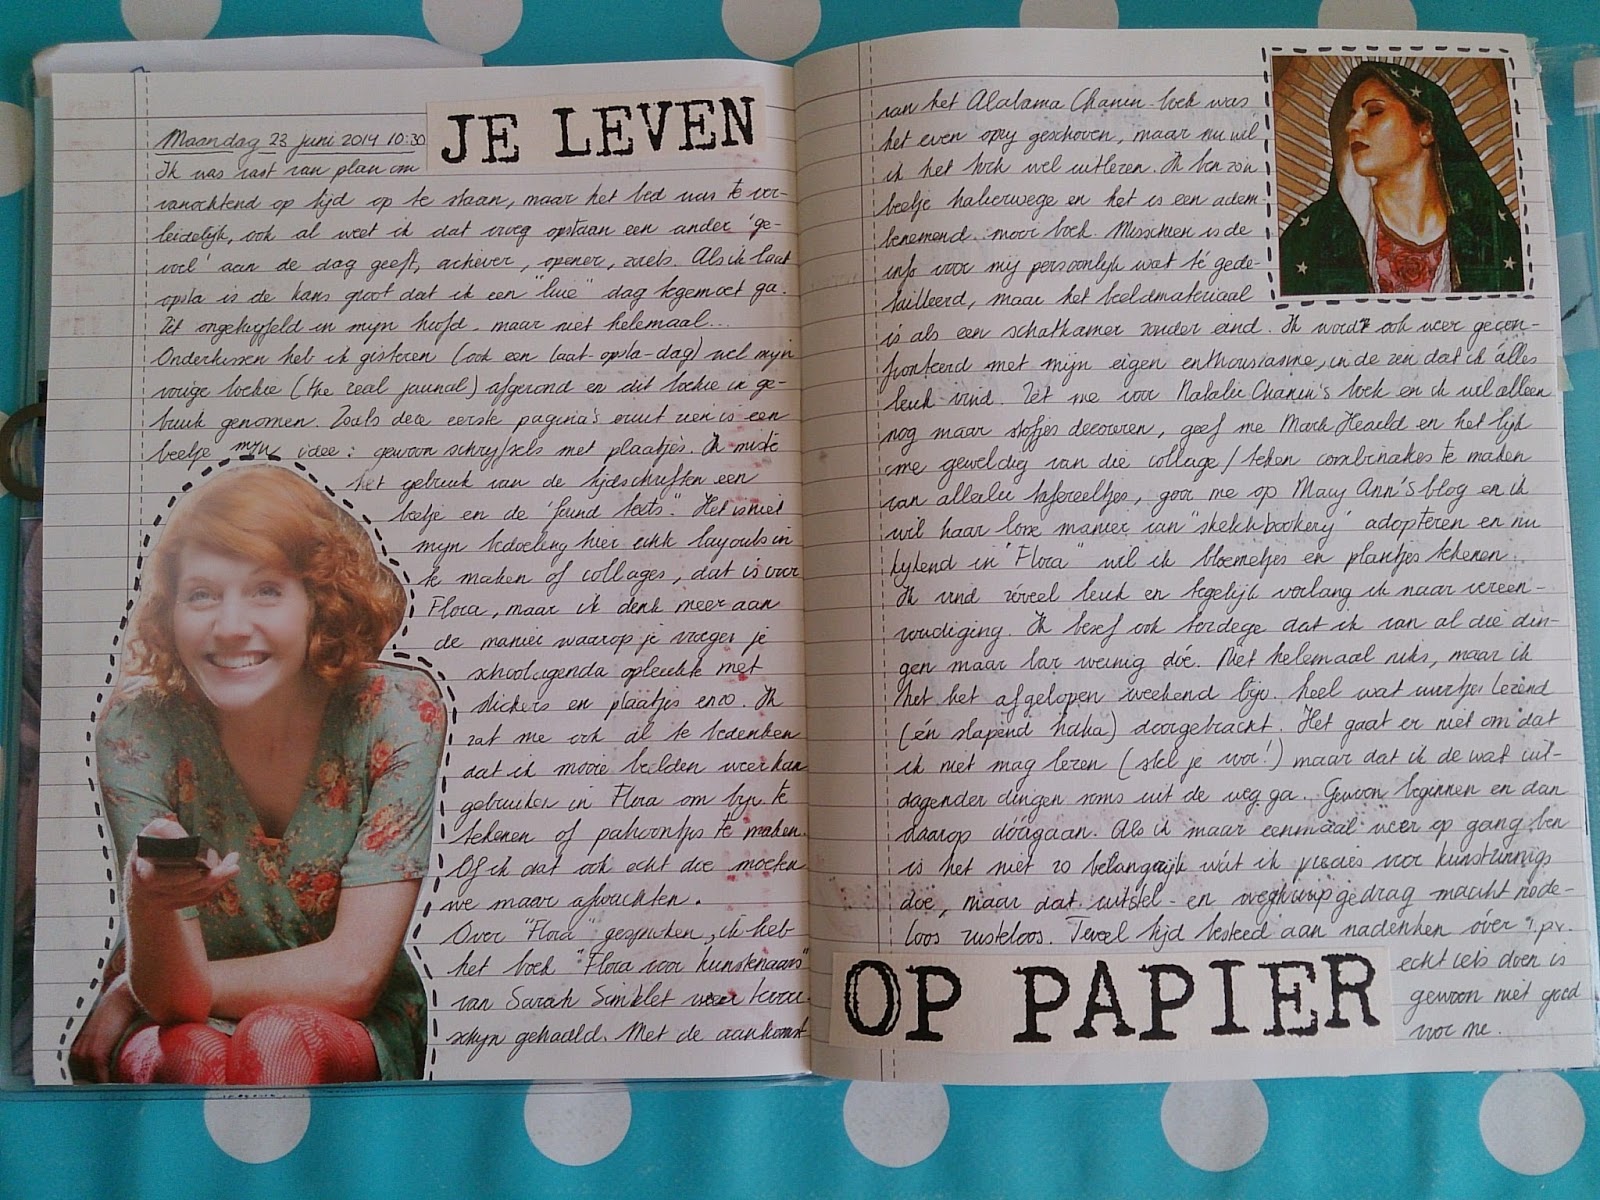 JE LEVEN
Maandag 23 juni 2014 10:30
Ik was vast van plan om
vanochtend op tijd op te staan, maar het bed was te ver-
leidelijk, ook al weet ik dat vroeg opstaan een ander 'ge-
voel' aan de dag geeft, actiever, opener, zoiets. Als ik laat
opsta is de kans groot dat ik een "luie" dag tegemoet ga.
Zit ongetwyfeld in mijn hoofd. maar niet helemaal...
Ondertussen heb ik gisteren (ook een laat-opsta-dag) wel mijn
vorige boekje (the real journal) afgerond en dit boekje in ge-
bruik genomen. Zoals deze eerste pagina's eruit zien is een
beetje mijn idee: gewoon schrijfsels met plaatjes. Ik miste
het gebruik van de tijdschriften een
beetje en de 'found texts". Het is niet
mijn bedoeling hier echt layouts in
te maken of collages, dat is voor
Flora, maar ik denk meer aan
de manier waarop je vroeger je
schoolagenda opleukte met
stickers en plaatjes enzo. Ik
zat me ook al te bedenken
dat ik mooie beelden weer kan
gebruiken in Flora om bijv. te
tekenen of patroontjes te maken.
Of ik dat ook echt doe moeten
we maar afwachten.
Over "Flora" gesproken, ik heb
het boek "Flora voor kunstenaars"
van Sarah Simblet weer tevoor-
schijn gehaald. Met de aankomst
van het Alabama Chanin-boek was
het even opzij geschoven, maar nu wil
ik het toch wel uitlezen. Ik ben zo'n
beetje halverwege en het is een adem-
benemend mooi boek. Misschien is de
info voor mij persoonlijk wat té gede-
tailleerd, maar het beeldmateriaal
is als een schatkamer zonder eind. Ik word ook weer gecon-
fronteerd met mijn eigen enthousiasme, in de zin dat ik álles
leuk vind. Zet me voor Natalie Chanin's boek en ik wil alleen
nog maar stofjes decoreren, geef me Mark Hearld en het lijkt
me geweldig van die collage/teken combinaties te maken
van allerlei tafereeltjes, gooi me op Macy Ann's blog en ik
wil haar losse manier van "sketchbookery' adopteren en nu
kijkend in "Flora" wil ik bloemetjes en plantjes tekenen.
Ik vind zóveel leuk en tegelijk verlang ik naar vereen-
voudiging. Ik besef ook terdege dat ik van al die din-
gen maar bar weinig dóe. Niet helemaal niks, maar ik
heb het afgelopen weekend bijv. heel wat uurtjes lezend
(én slapend haha) doorgebracht. Het gaat er niet om dat
ik niet mag lezen (stel je voor!) maar dat ik de wat uit-
dagender dingen soms uit de weg ga. Gewoon beginnen en dan
daarop dóórgaan. Als ik maar eenmaal weer op gang ben
is het niet zo belangrijk wát ik precies voor kunstzinnigs
doe, maar dat uitstel- en wegkruipgedrag maakt mode-
loos rusteloos. Teveel tijd besteed aan nadenken óver i.p.v.
echt iets doen is
gewoon niet goed
voor me.
OP PAPIER